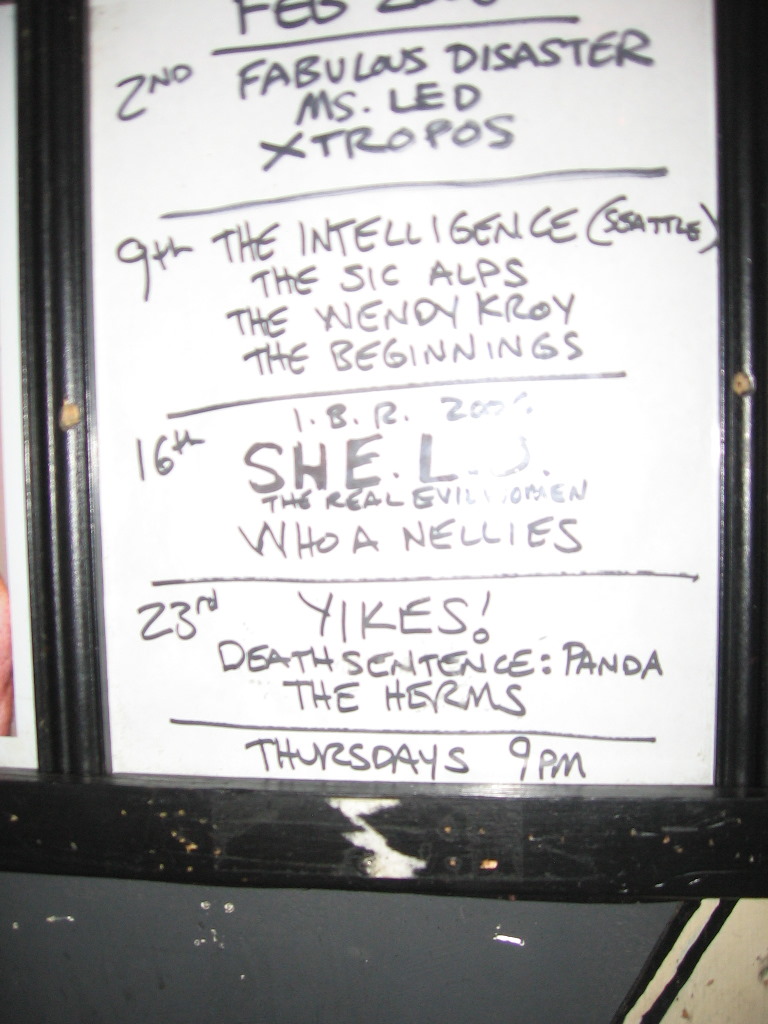 FEB
2ND FABULOUS DISASTER
MS. LED
XTROPOS
9th THE INTELLIGENCE (SEATTLE)
THE SIC ALPS
THE WENDY KROY
THE BEGINNINGS
I.B.R.
16th SHE.L.
THE REAL EVIL WOMEN
WHOA NELLIES
23rd YIKES!
DEATH SENTENCE: PANDA
THE HERMS
THURSDAYS 9PM